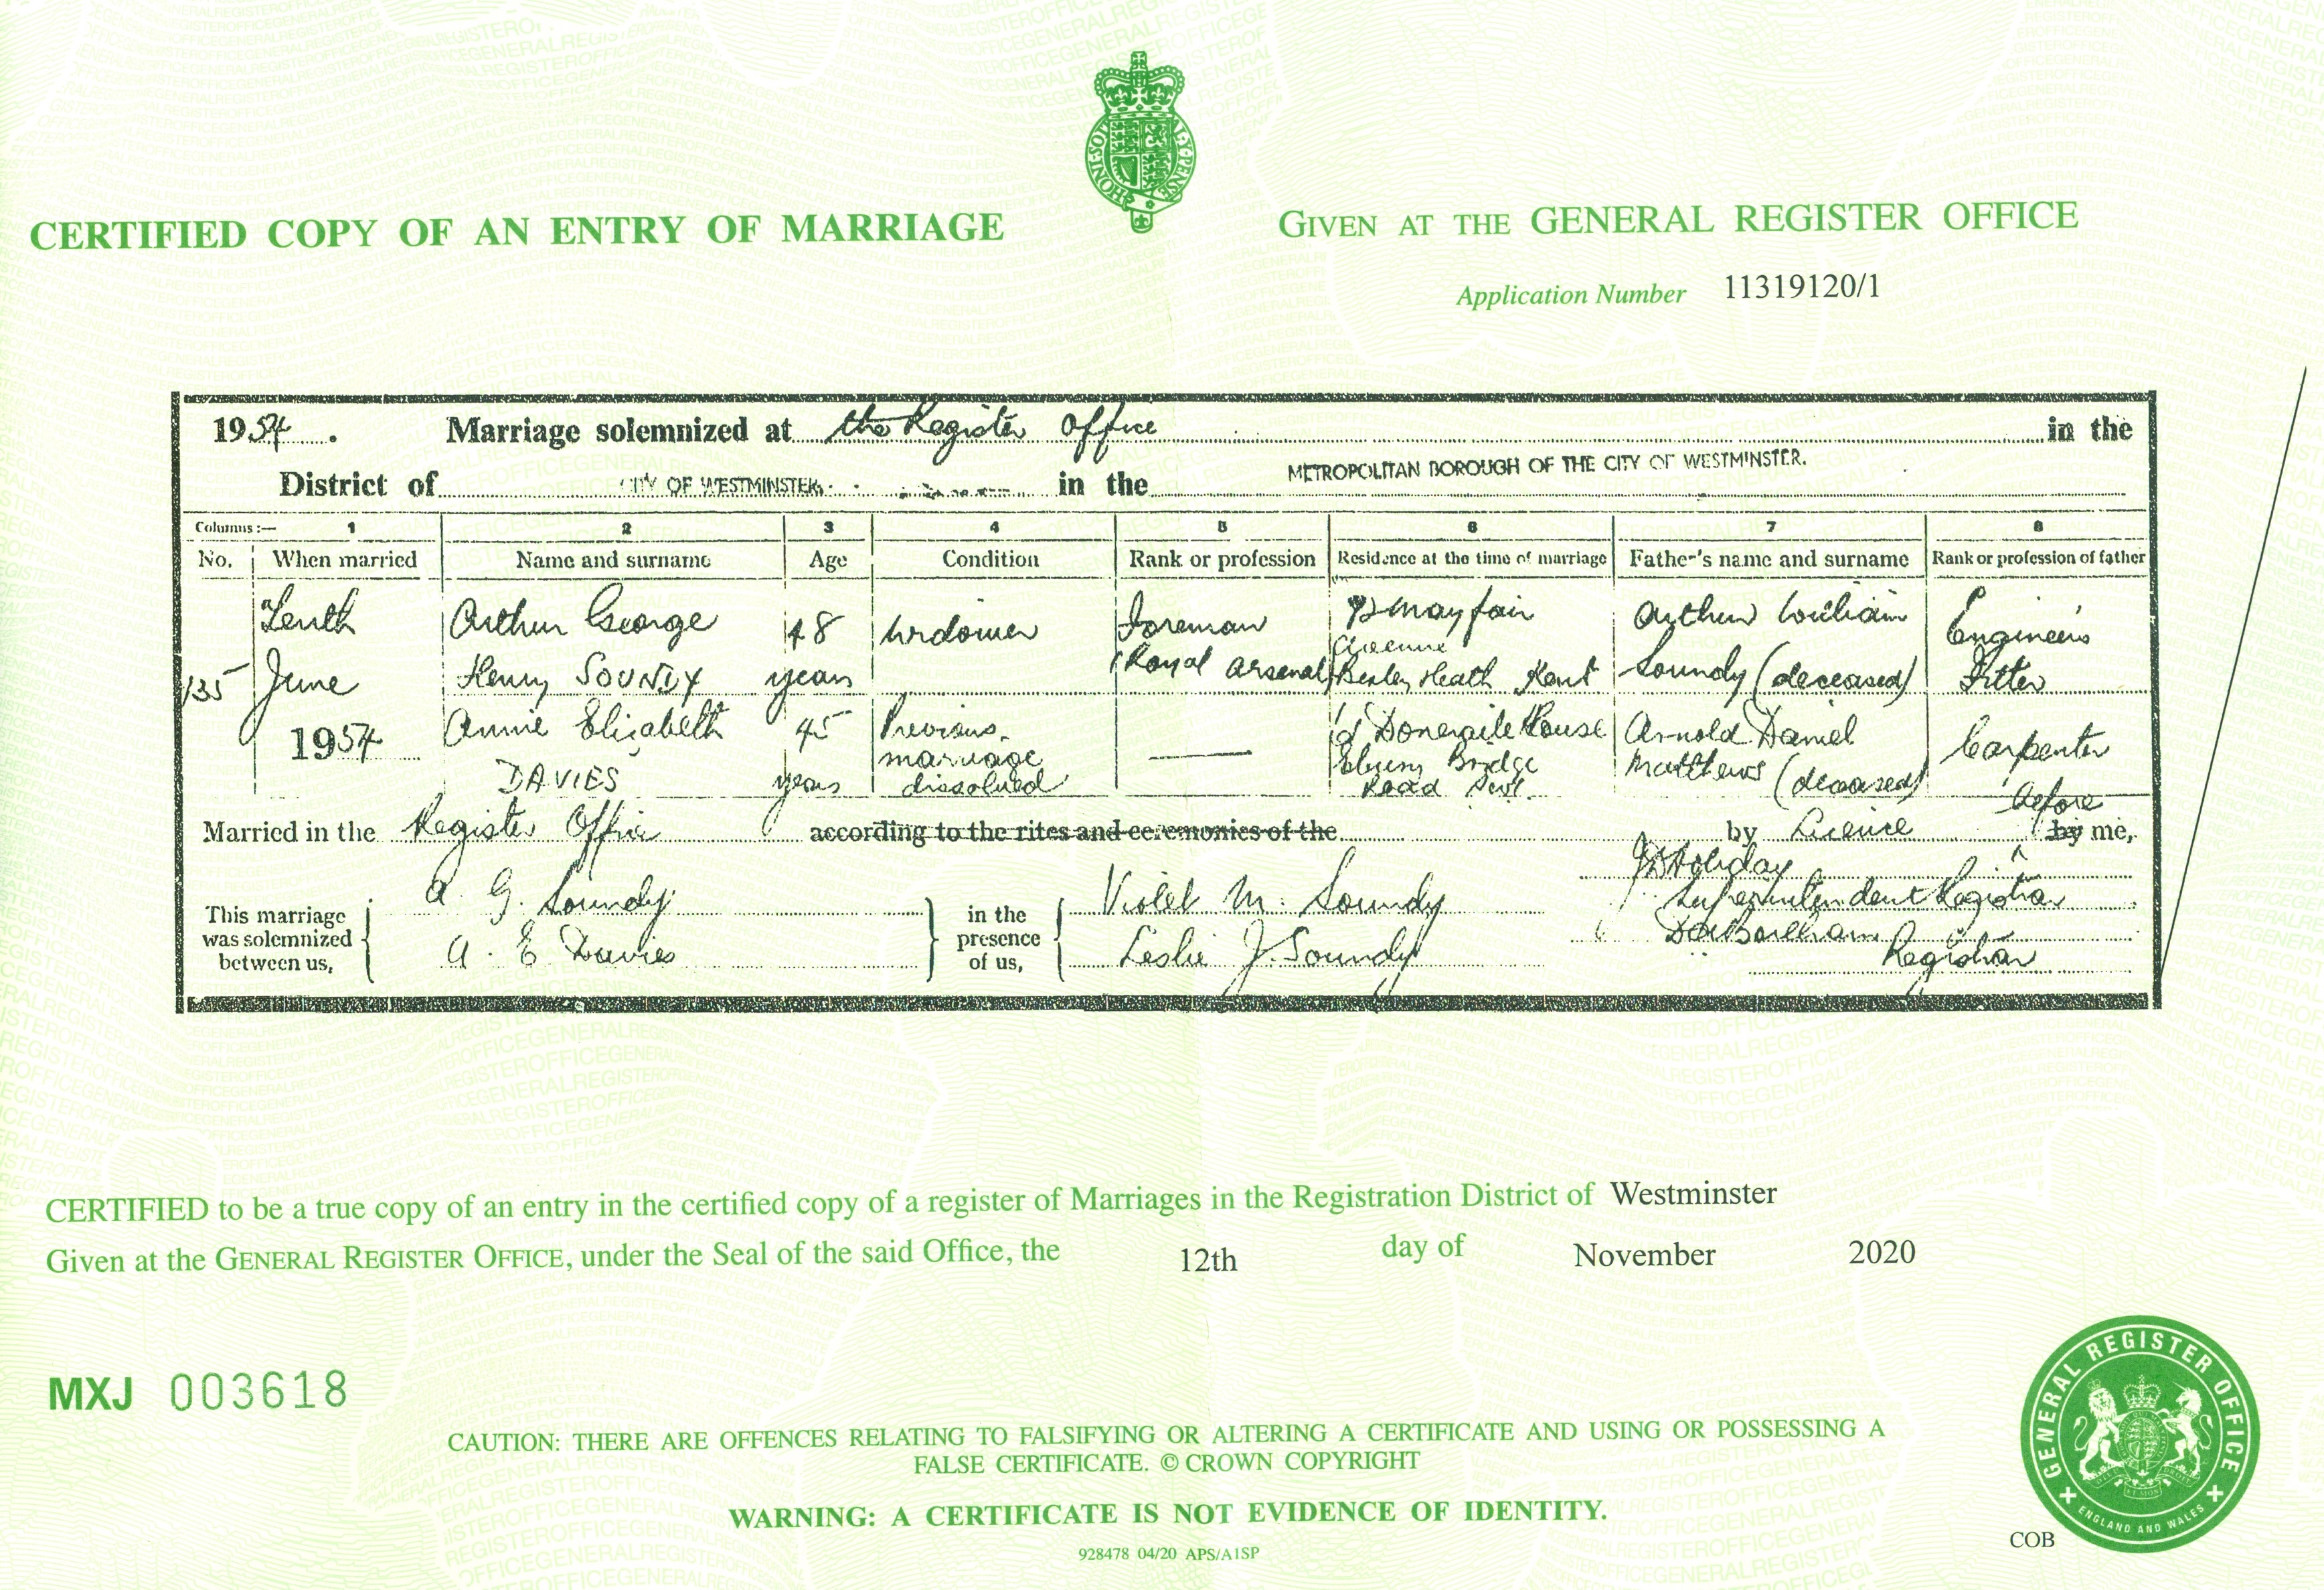 CERTIFIED COPY OF AN ENTRY OF MARRIAGE
GIVEN AT THE GENERAL REGISTER OFFICE
Application Number 11319120/1
1954. Marriage solemnized at the Register Office in the
District of CITY OF WESTMINSTER in the METROPOLITAN BOROUGH OF THE CITY OF WESTMINSTER.
Columns:— 1 2 3 4 5 6 7 8
No. When married Name and surname Age Condition Rank or profession Residence at the time of marriage Father's name and surname Rank or profession of father
Tenth Arthur George 48 Widower Foreman Mayfair Arthur William Engineers
Avenue
135 June Henry SOUNDY years (Royal Arsenal) Bexley Heath Kent Soundy (deceased) Fitter
1954 Annie Elizabeth 45 Previous Doneraile House Arnold Daniel Carpenter
marriage Ebury Bridge Matthews (deceased)
DAVIES years dissolved Road
Married in the Register Office according to the rites and ceremonies of the by Licence before by me,
This marriage was solemnized between us,
A. G. Soundy
A. E. Davies
in the presence of us,
Violet M. Soundy
Leslie J. Soundy
Holiday
Superintendent Registrar
Registrar
CERTIFIED to be a true copy of an entry in the certified copy of a register of Marriages in the Registration District of Westminster
Given at the GENERAL REGISTER OFFICE, under the Seal of the said Office, the 12th day of November 2020
MXJ 003618
CAUTION: THERE ARE OFFENCES RELATING TO FALSIFYING OR ALTERING A CERTIFICATE AND USING OR POSSESSING A
FALSE CERTIFICATE. © CROWN COPYRIGHT
WARNING: A CERTIFICATE IS NOT EVIDENCE OF IDENTITY.
928478 04/20 APS/A1SP
COB
GENERAL REGISTER OFFICE
ENGLAND AND WALES